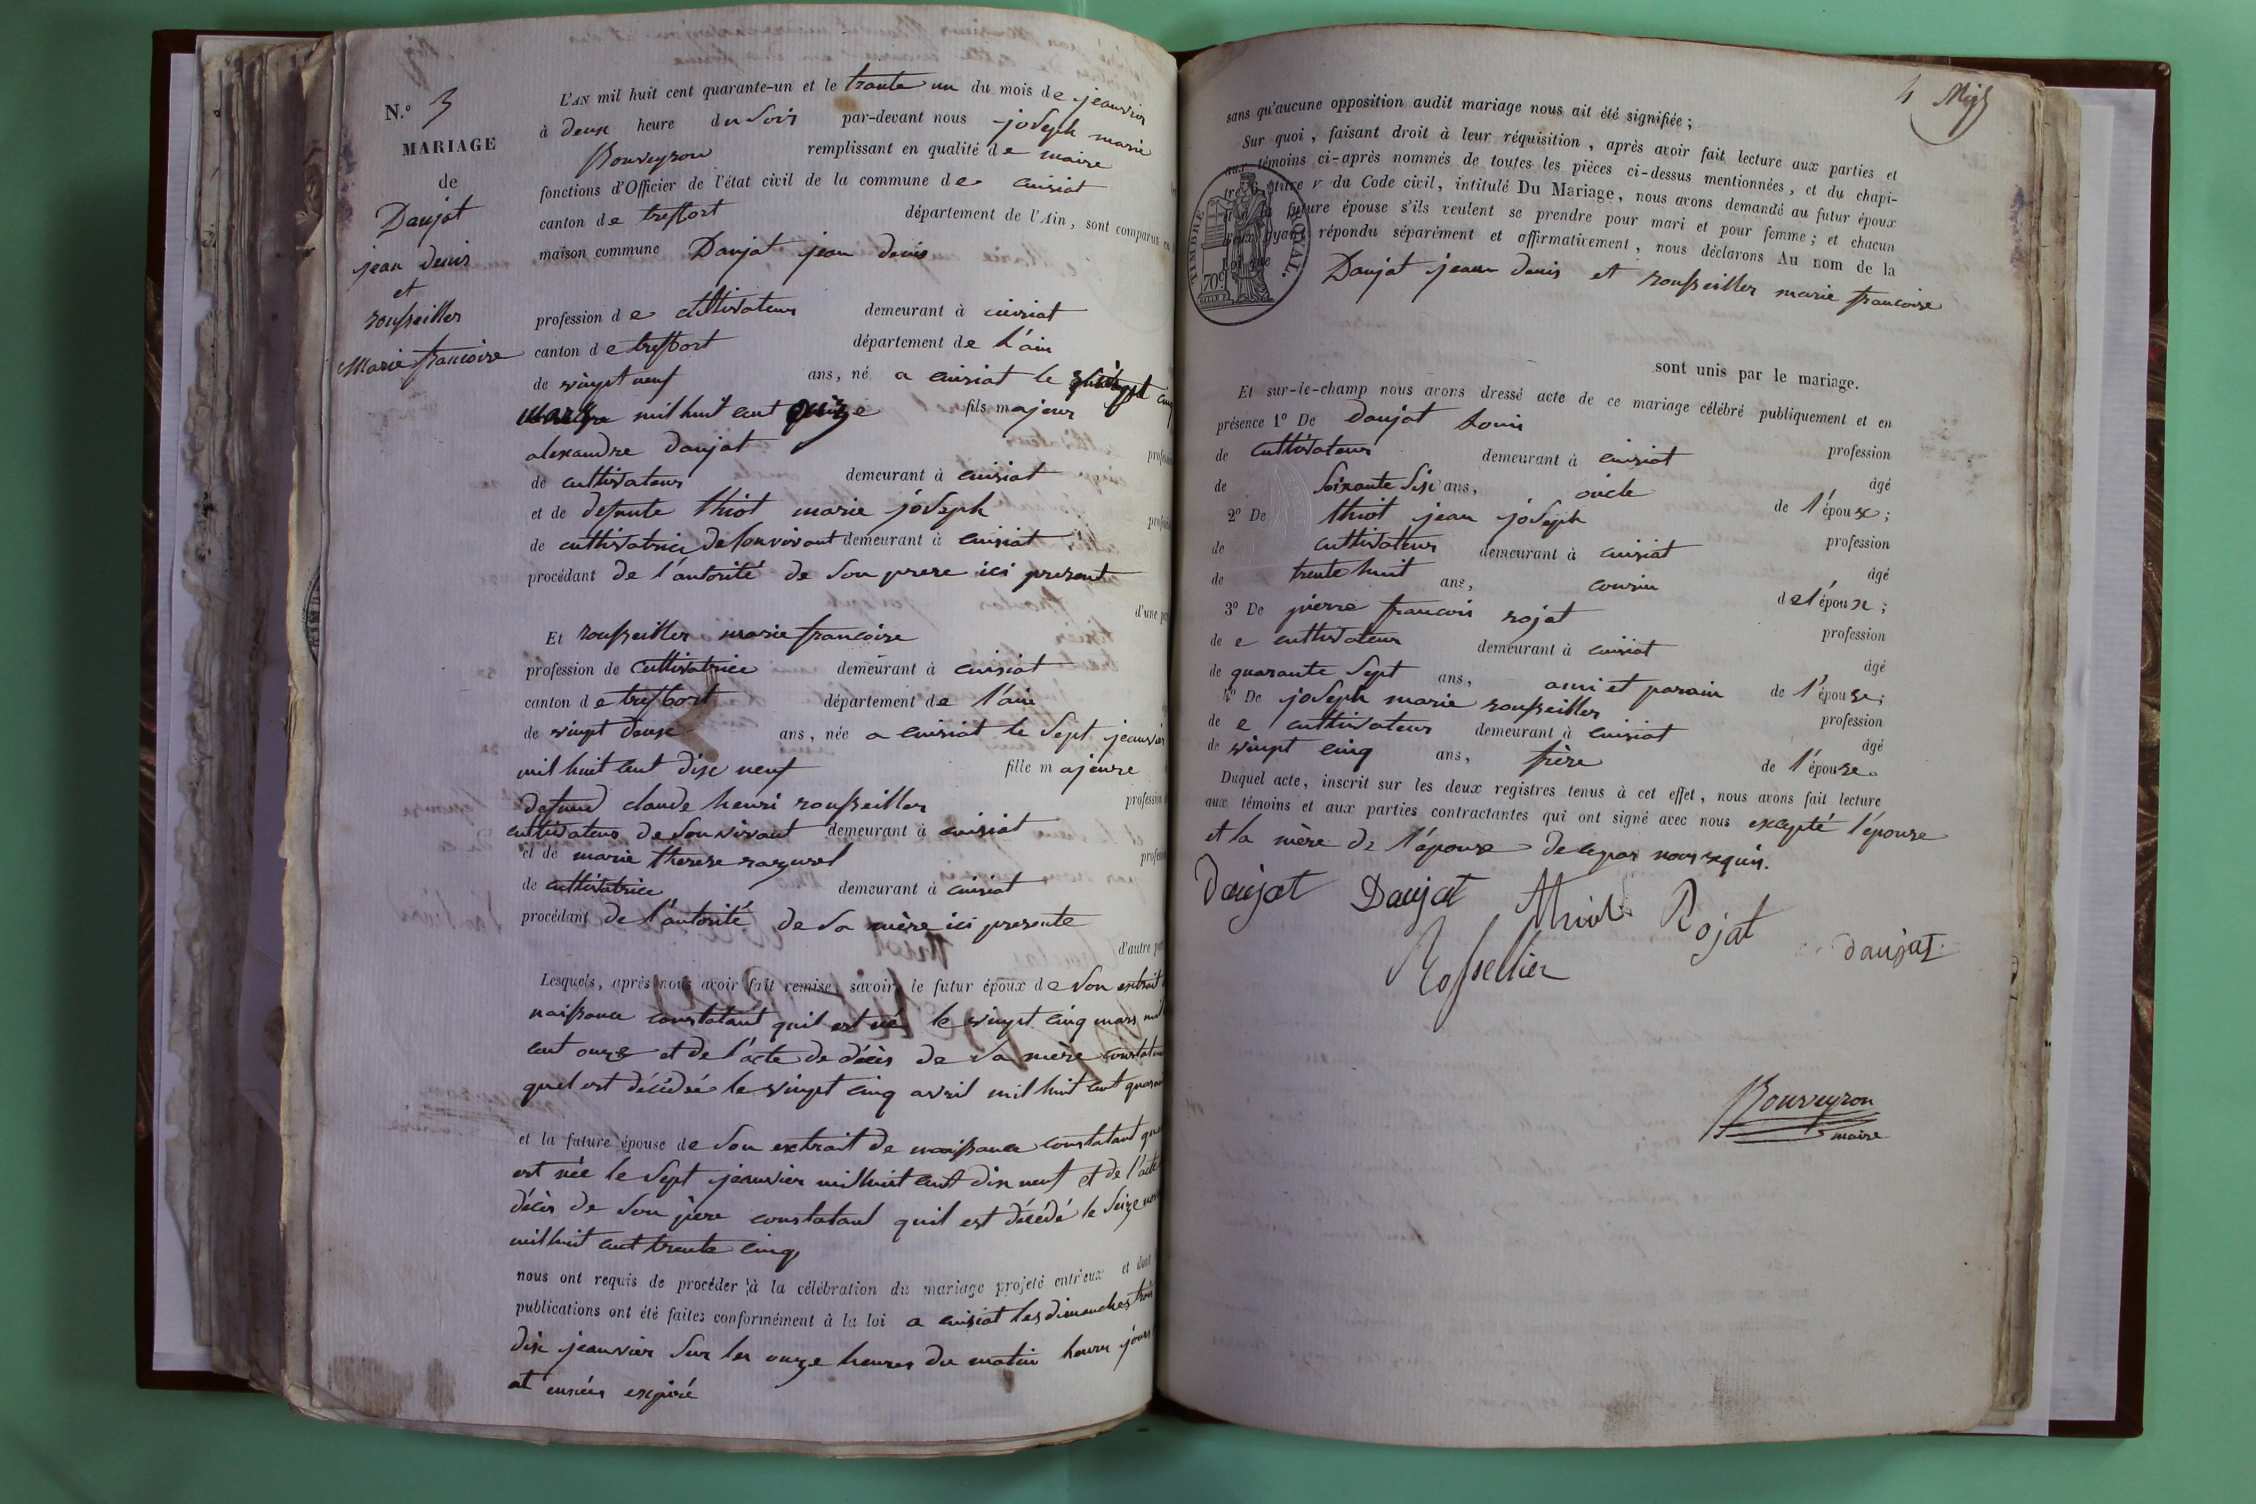 N.° 3
MARIAGE
de
Daujat
jean denis
et
rousseiller
Marie francoise
L'AN mil huit cent quarante-un et le trante un du mois de jeanvier
à deux heure du soir par-devant nous joseph marie
Bouveyron remplissant en qualité de maire
fonctions d'Officier de l'état civil de la commune de cuisiat
canton de treffort département de l'Ain, sont comparus en
maison commune Daujat jean denis
profession de cultivateur demeurant à cuisiat
canton de treffort département de l'ain
de vingt neuf ans, né a cuisiat le vingt cinq
mil huit cent fils majeur
alexandre daujat
de cultivateur demeurant à cuisiat
et de defunte thiot marie joseph
de cultivatrice de son vivant demeurant à cuisiat
procédant de l'autorité de son prere ici present
d'une part
Et rousseiller marie francoise
profession de cultivatrice demeurant à cuisiat
canton de treffort département de l'ain
de vingt deux ans, née a cuisiat le sept jeanvier
mil huit cent dix neuf fille majeure
defund claude henri rousseiller profession
cultivateur de son vivant demeurant à cuisiat
et de marie therese razurel
de cultivatrice demeurant à cuisiat
procédant de l'autorité de sa mère ici presente
d'autre part
Lesquels, après nous avoir fait remise, savoir, le futur époux de son extrait
naissance constatant quil est né le vingt cinq mars mil
cent onze et de l'acte de décès de sa mère constatant
quel est décédée le vingt cinq avril mil huit cent quarante
et la future épouse de son extrait de naissance constatant
est née le sept jeanvier mil huit cent dix neuf et de l'acte
décès de son père constatant quil est décédé le seize
mil huit cent trente cinq
nous ont requis de procéder à la célébration du mariage projeté entr'eux et dont
publications ont été faites conformément à la loi a cuisiat les dimanches trois
dix jeanvier sur les onze heures du matin heures jours
et années expiré
4 Migl
sans qu'aucune opposition audit mariage nous ait été signifiée ;
Sur quoi, faisant droit à leur réquisition, après avoir fait lecture aux parties et
aux témoins ci-après nommés de toutes les pièces ci-dessus mentionnées, et du chapi-
tre 6, titre V du Code civil, intitulé Du Mariage, nous avons demandé au futur époux
et à la future épouse s'ils veulent se prendre pour mari et pour femme ; et chacun
d'eux ayant répondu séparément et affirmativement, nous déclarons Au nom de la
Loi que Daujat jean denis et rousseiller marie francoise
TIMBRE ROYAL.
70c
sont unis par le mariage.
Et sur-le-champ nous avons dressé acte de ce mariage célébré publiquement et en
présence 1° De daujat Louis profession
de cultivateur demeurant à cuisiat âgé
de soixante six ans, oncle de l'époux ;
2° De thiot jean joseph profession
de cultivateur demeurant à cuisiat âgé
de trente huit ans, cousin de l'époux ;
3° De pierre francois rojat profession
de e cultivateur demeurant à cuisiat âgé
de quarante sept ans, ami et parain de l'épouse ;
4° De joseph marie rousseiller profession
de e cultivateur demeurant à cuisiat âgé
de vingt cinq ans, frère de l'épouse.
Duquel acte, inscrit sur les deux registres tenus à cet effet, nous avons fait lecture
aux témoins et aux parties contractantes qui ont signé avec nous excepté l'épouse
et la mère de l'épouse de ce par nous requis.
Daujat Daujat Thiot Rojat
Daujat
Rossellier
Bouveyron
maire